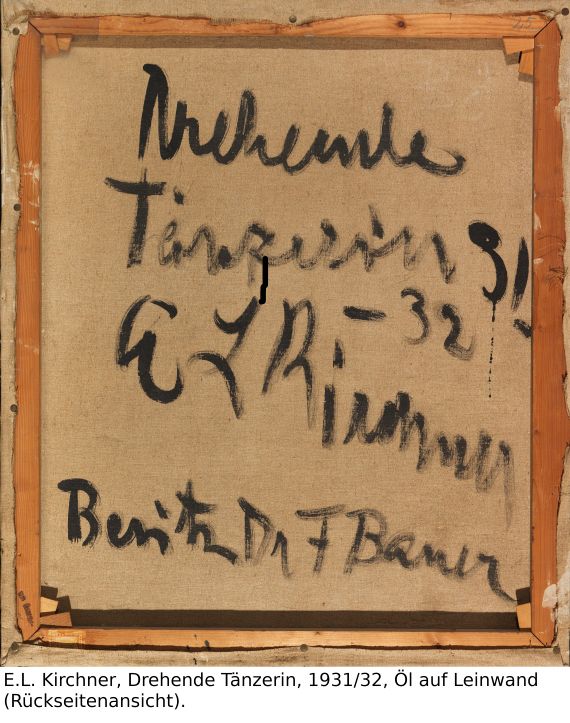 Drehende
Tänzerin 31
-32
E L Kirchner
Besitz Dr F Bauer
E.L. Kirchner, Drehende Tänzerin, 1931/32, Öl auf Leinwand
(Rückseitenansicht).